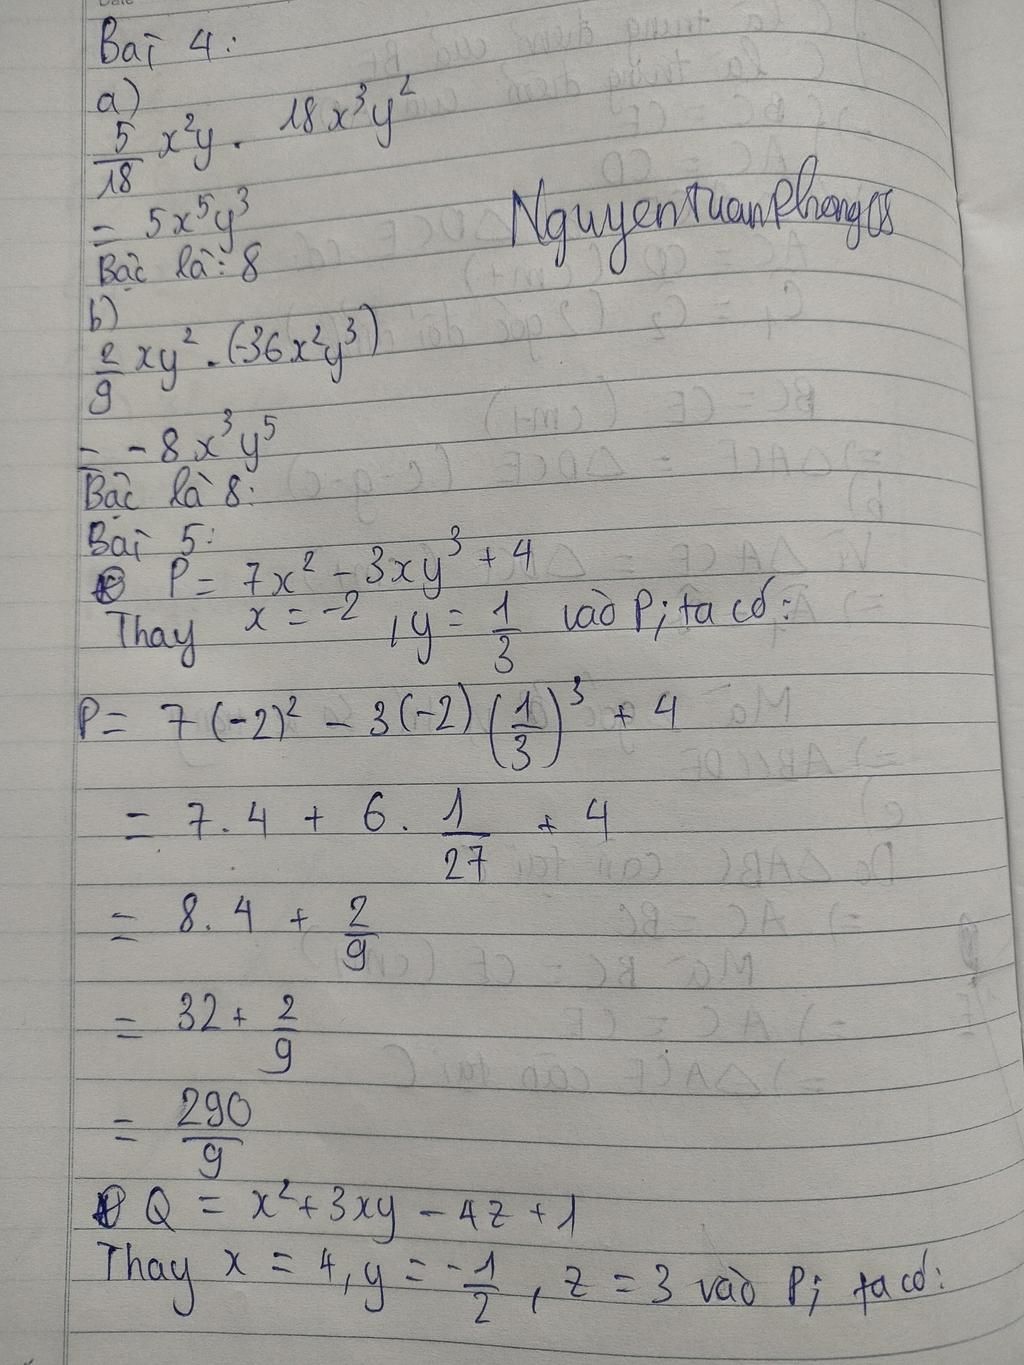 Date
Bài 4:
a)
5/18 x²y . 18x³y²
= 5x⁵y³
NguyenTuanPhong
Bậc là: 8
b)
2/9 xy² . (-36x²y³)
= -8x³y⁵
Bậc là 8:
Bài 5:
P = 7x² - 3xy³ + 4
Thay x = -2, y = 1/3 vào P; ta có:
P = 7(-2)² - 3(-2)(1/3)³ + 4
= 7.4 + 6. 1/27 + 4
= 8.4 + 2/9
= 32 + 2/9
= 290/9
Q = x² + 3xy - 4z + 1
Thay x = 4, y = -1/2, z = 3 vào P; ta có: